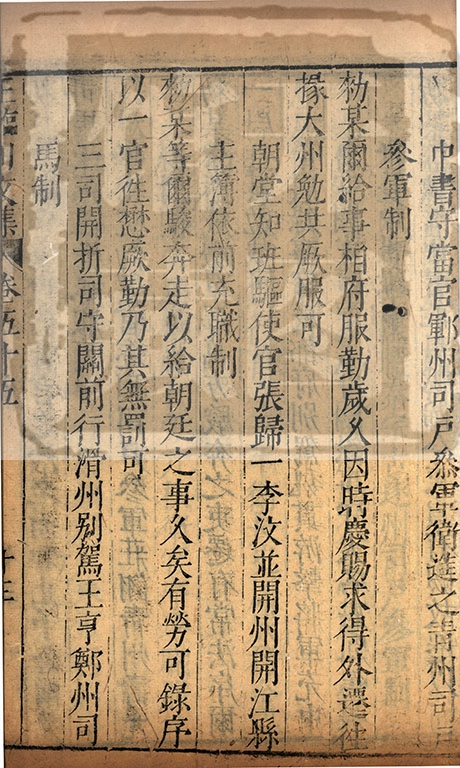 中書守當官鄆州司戶叅軍衛進之青州司戶
叅軍制
勑某爾給事相府服勤歲久因時慶賜求得外遷徃
掾大州勉共厥服可
朝堂知班驅使官張歸一李汶並開州開江縣
主簿依前充職制
勑某等爾駿奔走以給朝廷之事久矣有勞可錄序
以一官徃懋厥勤乃其無罰可
三司開折司守闕前行滑州别駕王亨鄭州司
馬制
川文集 卷五十五
十三